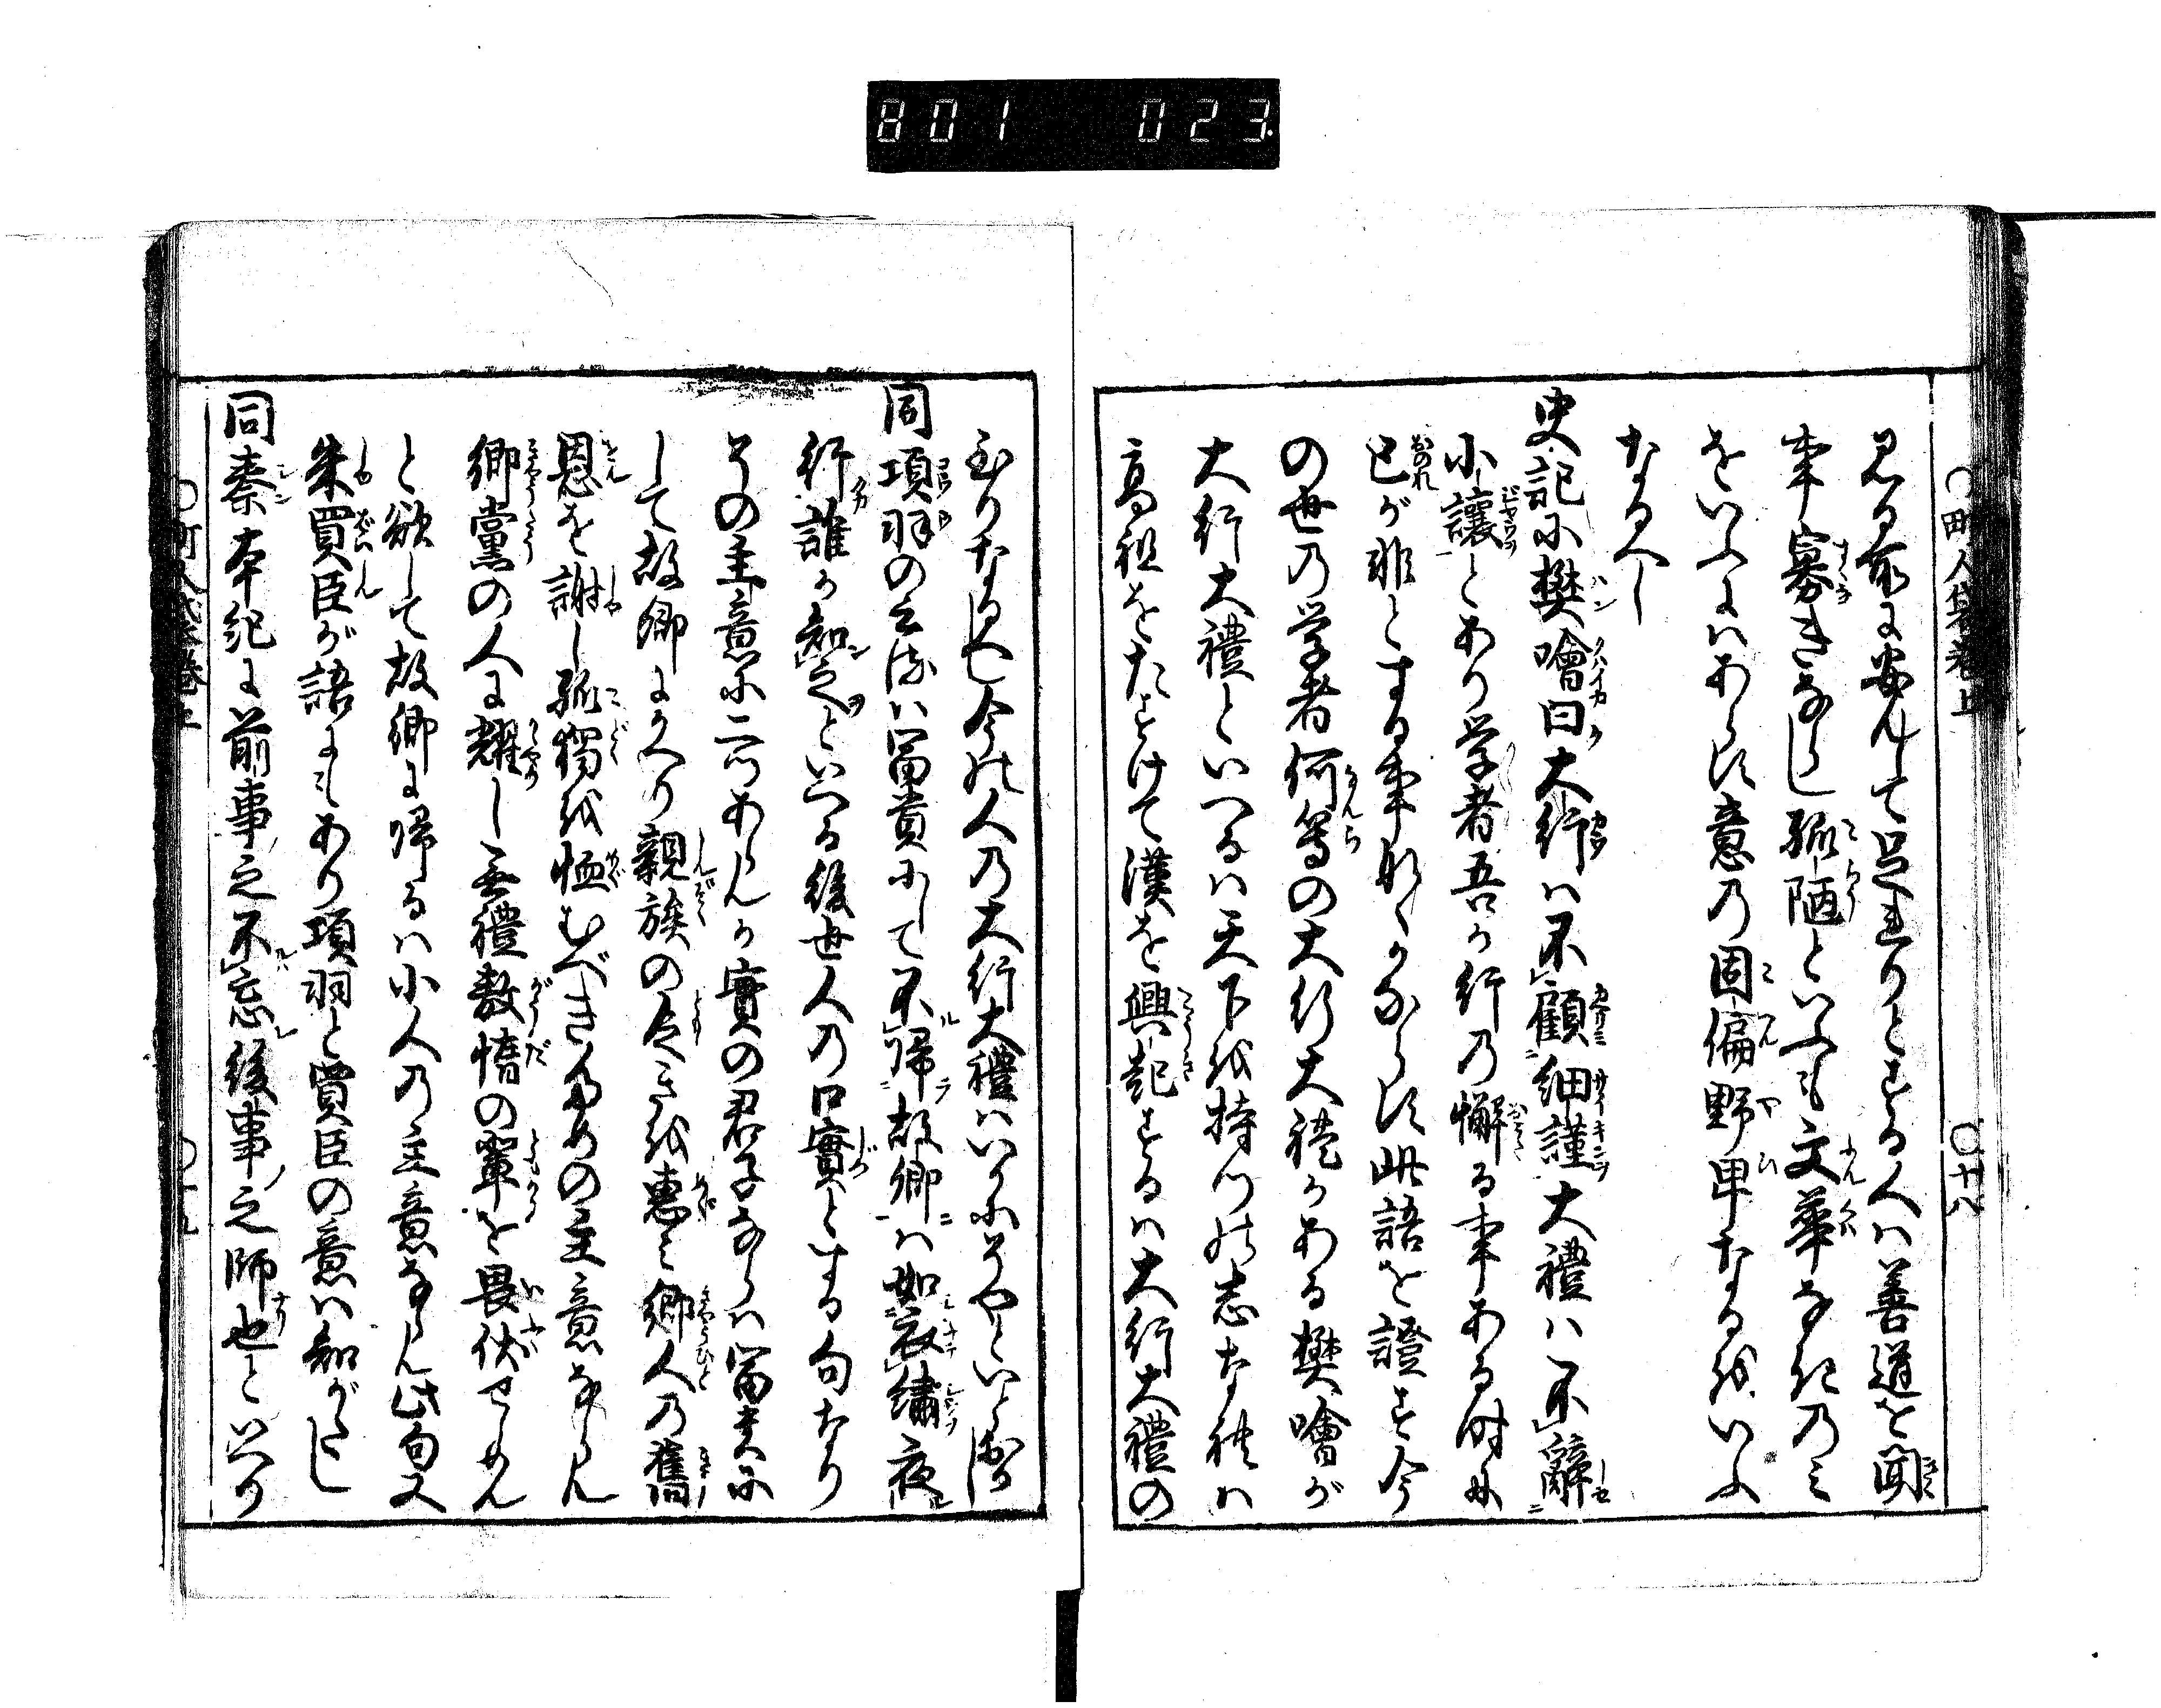 801 023
町人袋巻上 〇十八
見る前に安んして足れりとする人は善道を聞
事寡きなるへし孤陋といふも文華なきのみ
をいふにはあらす意の固偏野卑なるをいふ
なるへし
史記に樊噲曰大行は不顧細謹大禮は不辭
小讓とあり学者吾か行の懈る事ある時に
已が非とする事なくかならす此語を證す今
の世の学者何等の大行大禮かある樊噲が
大行大禮といへるは天下を持つの志なれは
高祖をたすけて漢を興起するは大行大禮の
至りなるへし今の人の大行大禮はいかにそや
同項羽の云るは冨貴にして不歸故郷は如衣繍夜
行誰か知之といへる後世人の口實とする句なり
その主意に二つあらんか實の君子ならは冨貴に
して故郷にかへり親族の乏きを惠み郷人の舊
恩を謝し孤獨を恤むべきための主意ならん
郷黨の人に耀し無禮敖惰の輩を畏伏せしめん
と欲して故郷に歸るは小人の主意ならん此句又
朱買臣が語にもあり項羽と買臣の意は知がたし
同秦本紀に前事之不忘後事之師也といへり
町人袋巻上 〇十九